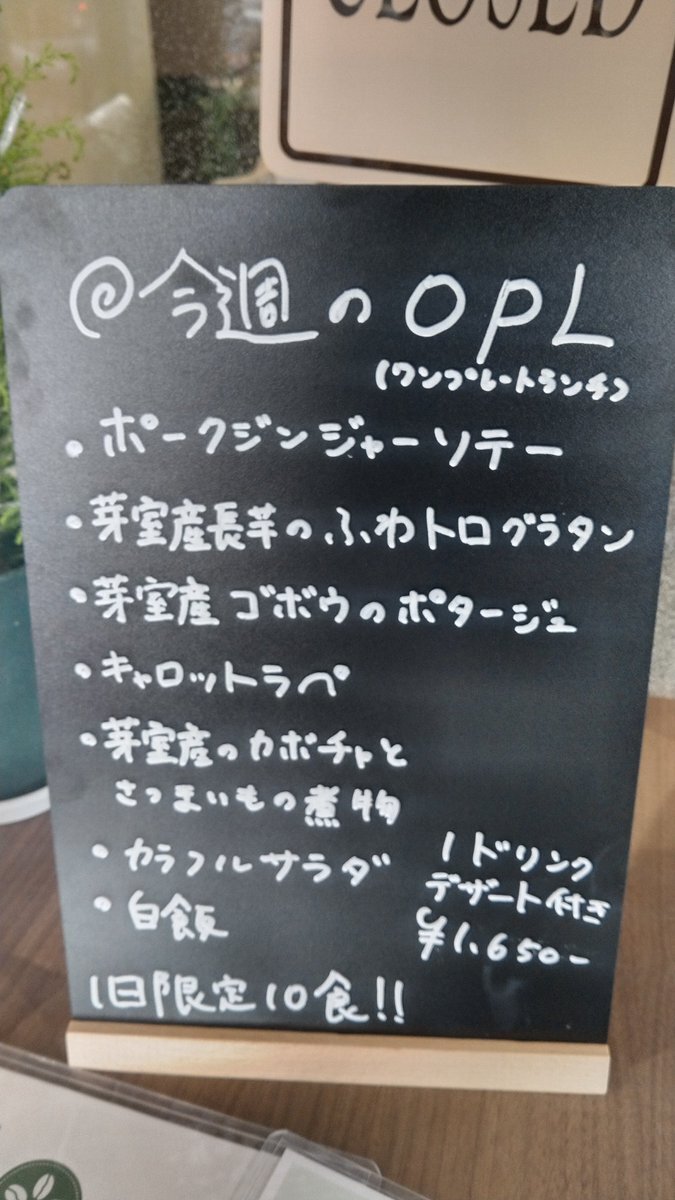 CLOSED
@今週のOPL
(ワンプレートランチ)
・ポークジンジャーソテー
・芽室産長芋のふわトログラタン
・芽室産ゴボウのポタージュ
・キャロットラペ
・芽室産のカボチャと
さつまいもの煮物
・カラフルサラダ
・白飯
1ドリンク
デザート付き
¥1,650-
1日限定10食!!